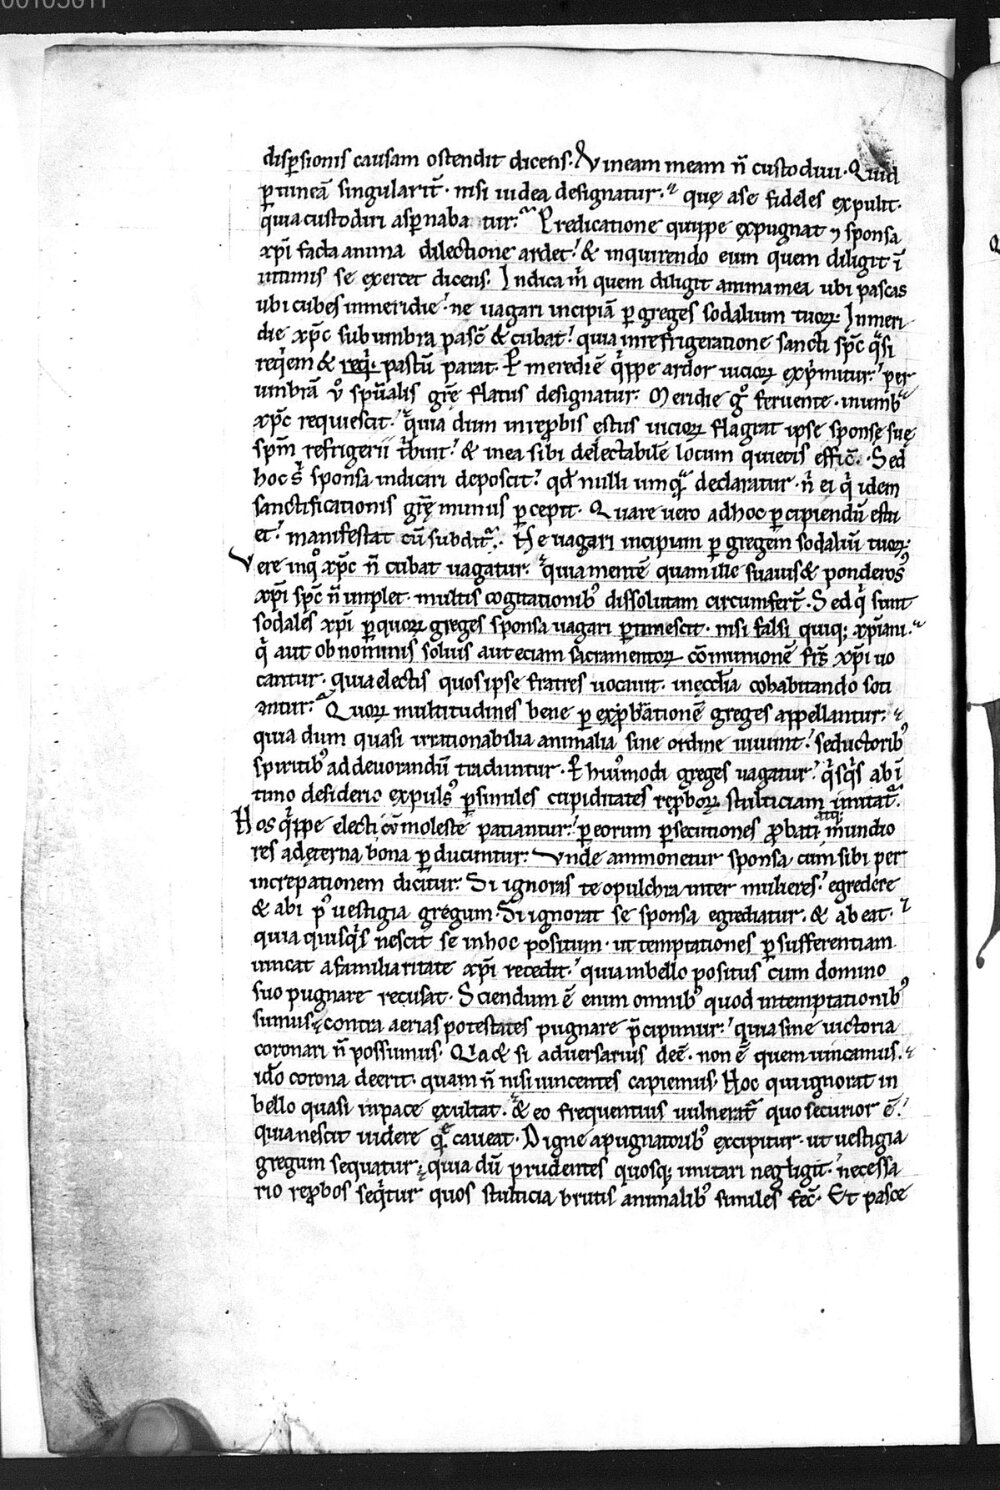 disꝑsionis causam ostendit dicens. Vineam meam n̄ custodiui. Quid
ꝑ uineā singularit̄. nisi iudea designatur. quę a se fideles expulit.
quia custodiri aspnaba tur. Predicatione quippe expugnat ⁊ sponsa
xp̄i facta anima dilectione ardet. & inquirendo eum quem diligit ī
intimis se exercet dicens. Indica m̄ quem diligit anima mea ubi pascas
ubi cubes in meridie. ne uagari incipiā ꝑ greges sodalium tuoꝝ. In meri
die xp̄c sub umbra pasc̄ & cubat. quia in refrigeratione sancti sp̄c q̇si
req̇em & req̇. pastū parat. Per meredie q̇ppe ardor uicioꝝ exṗmitur. per
umbrā ů sp̄ualis gr̄e flatus designatur. Meridie gͦ feruente. in umbᵃ
xp̄c requiescit. quia dum in reꝓbis estus uicioꝝ flagrat ipse sponse suę
sp̄m refrigerii t̄buit. & in ea sibi delectabilē locum quietis effic̄. Sed
hoc s̄ sponsa indicari deposcit. qd̄ nulli umqͣ declaratur. n̄ ei q̇ idem
sanctificationis gr̄ę munus ꝑcepit. Quare uero ad hoc ꝑcipiendū estu
et. manifestat cū subditͬ. Ne uagari incipiam ꝑ gregem sodaliū tuoꝝ.
Vere inqͦ xp̄c n̄ cubat uagatur. quia mentē quam ille suauis & ponderosꝰ
xp̄i sp̄c n̄ implet. multis cogitationibꝰ dissolutam circumfert̄. Sed q̇ sunt
sodales xp̄i ꝑ quoꝝ greges sponsa uagari ꝑtimescit. nisi falsi quiq; xp̄iani.
q̇ aut ob nominis soliis aut eciam sacramentoꝝ cōmunionē fr̄s xp̄i uo
cantur. quia electis quos ipse fratres uocauit. in ęcc̄lia cohabitando soci
antur. Quoꝝ multitudines bene ꝑ exꝓbationē greges appellantur.
quia dum quasi irrationabilia animalia sine ordine uiuunt. seductoribꝰ
spiritibꝰ ad deuorandū traduntur. Per huiꝰmodi greges uagatur. q̇sq̇s ab ī
timo desiderio expulsꝰ ꝑ similes cupiditates reꝓboꝝ stulticiam imitatͬ.
Hos q̇ppe electi cū moleste patiantur. ꝑ eorum ꝑsecutiones ꝓbati atq; mundio
res ad ęterna bona ꝑducuntur. Vnde ammonetur sponsa cum sibi per
increpationem dicitur. Si ignoras te o pulchra inter mulieres. egredere
& abi pꝰ uestigia gregum. Si ignorat se sponsa egrediatur. & abeat.
quia quisq̇s nescit se in hoc positum. ut temptationes ꝑ sufferentiam
uincat a familiaritate xp̄i recedit. quia in bello positus cum domino
suo pugnare recusat. Sciendum ē enim omnibꝰ quod in temptationibꝰ
sumus. contra aerias potestates pugnare p̄cipimur. quia sine uictoria
coronari n̄ possumus. Qua & si aduersarius deē. non ē quem uincamus.
ido corona deerit. quam n̄ nisi uincentes capiemus. Hoc qui ignorat in
bello quasi in pace exultat. & eo frequentius uulneratͬ quo securior ē.
quia nescit uidere qͣ caueat. Digne a pugnatoribꝰ excipitur. ut uestigia
gregum sequatur. quia dū prudentes quosq; imitari negligit. necessa
rio reꝓbos seq̇tur quos stulticia brutis animalibꝰ similes fec̄. Et pasce